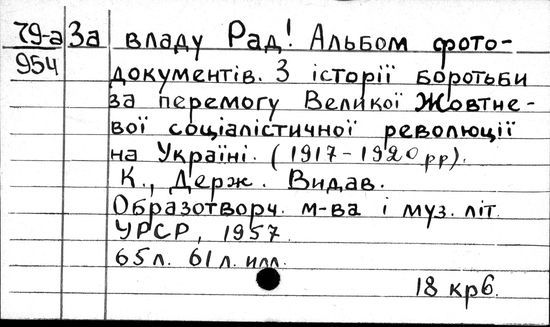 79-а За владу Рад! Альбом фото-
954 документів. З історії боротьби
за перемогу Великої Жовтне-
вої соціалістичної революції
на Україні. (1917-1920 рр).
К., Держ. Видав.
Образотворч. м-ва і муз. літ.
УРСР, 1957.
65 л. 61 л. илл.
18 крб.